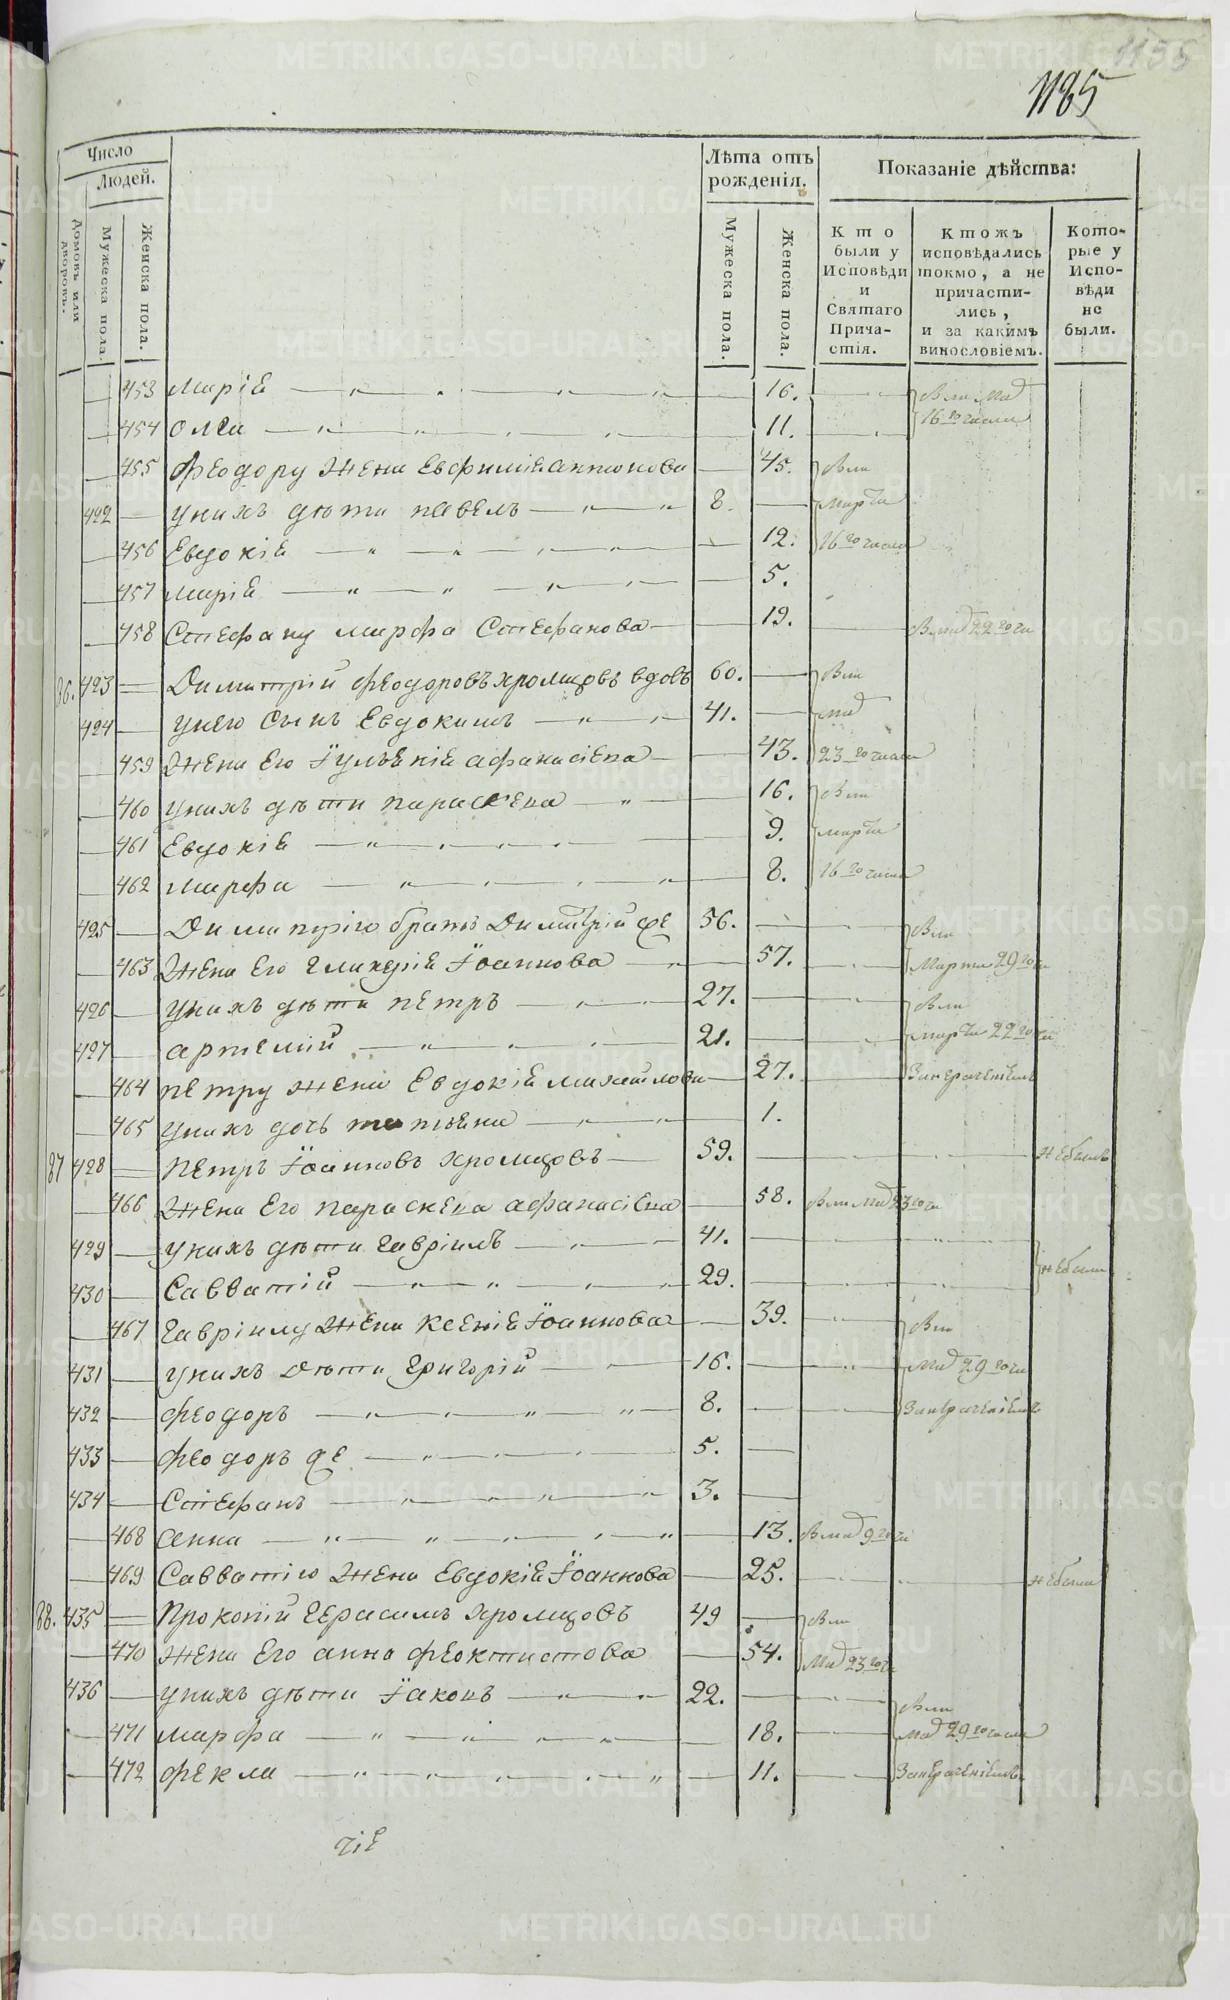 1185
Число Людей.
Лѣта отъ рожденія.
Показаніе дѣйства:
Домовъ или дворовъ.
Мужеска пола.
Женска пола.
Мужеска пола.
Женска пола.
Кто были у Исповѣди и Святаго Причастія.
Ктожъ исповѣдались токмо, а не причастились, и за какимъ винословіемъ.
Которые у Исповѣди не были.
453 Марія 16.
454 Олга 11. 16 го числа
455 Феодору жена Евфимія Антонова 45.
422 у нихъ дѣти Павелъ 8. Марта
456 Евдокія 12. 16 го числа
457 Марія 5.
458 Стефану Марфа Стефанова 19. 22 го чи
86. 423 Димитрій Феодоровъ Хромцовъ вдовъ 60.
424 у него сынъ Евдокимъ 41.
459 Жена его Іуліянія Афанасіева 43. 23 го числа
460 у нихъ дѣти Параскева 16.
461 Евдокія 9. Марта
462 Марфа 8. 16 го числа
425 Димитрію братъ Димитрій же 56.
463 Жена его Гликерія Іоаннова 57. Марта 29 го чи
426 у нихъ дѣти Петръ 27.
427 Артемій 21. Марта 22 го чи
464 Петру жена Евдокія Михайлова 27.
465 у нихъ дочь Татьяна 1.
87 428 Петръ Іоанновъ Хромцовъ 59. не былъ
466 Жена его Параскева Афанасіева 58. 23 го чи
429 у нихъ дѣти Гавріилъ 41.
430 Савватій 29. не были
467 Гавріилу жена Ксенія Іоаннова 39.
431 у нихъ дѣти Григорій 16. 29 го чи
432 Феодоръ 8.
433 Феодоръ же 5.
434 Стефанъ 3.
468 Анна 13. 9 го чи
469 Савватію жена Евдокія Іоаннова 25. не была
88. 435 Прокопій Герасимъ Хромцовъ 49
470 Жена его Анна Феоктистова 54. 23 го чи
436 у нихъ дѣти Іаковъ 22.
471 Марфа 18. 29 го числа
472 Фекла 11.